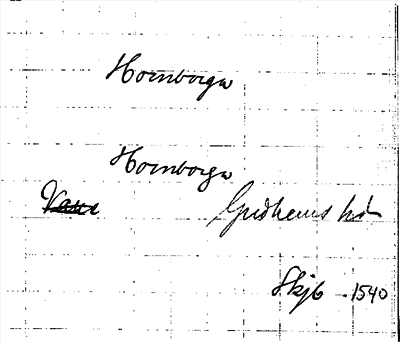 Hornborga
Hornborga
Gudhems hd
Skjb. 1540